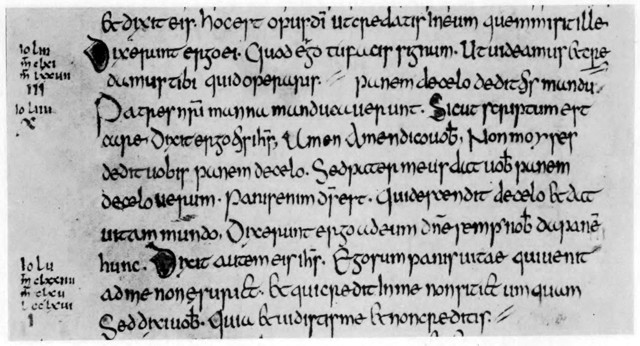 & dixit eis. hocest opusdī utcredatis ineum quemmisit ille
Io liii
Dixerunt ergoei. Quod ergo tufacis signum. Utuideamus &cre
damustibi quidoperaris. // panem decelo dedit eis mandu
Io liiii
x
Patres nr̄i manna manducauerunt. Sicut scriptum est
care. Dixit ergo eis ih̄s, Amen Amendicouob̄, Nonmoyses
dedit uobis panem decelo. Sedpater meus dat uob̄ panem
decelo uerum. Panisenim dī est. Quidescendit decelo & dat
uitam mundo, Dixerunt ergo adeum dn̄e semp nob̄ da panē
Io lu
hunc. Dixit autem eis ih̄s. Egosum panis uitae quiuenit
adme nonesuri&. & quicredit inme nonsiti& umquam
i
Seddixiuob̄. Quia &uidistisme &noncreditis. //